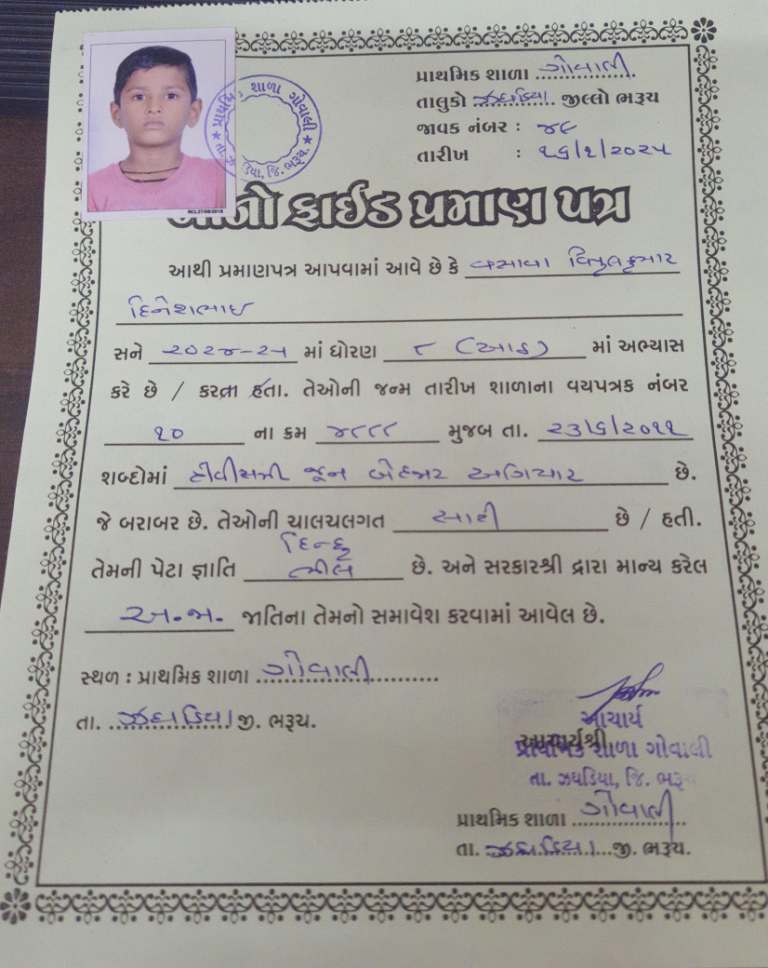 પ્રાથમિક શાળા ગોવાલી
તાલુકો ઝઘડિયા જીલ્લો ભરૂચ
જાવક નંબર : ૪૯
તારીખ : ૧૬/૧/૨૦૨૫
શાળા ગોવાલી
ડિયા, જિ. ભરૂચ.
ફાઈડ પ્રમાણ પત્ર
આથી પ્રમાણપત્ર આપવામાં આવે છે કે વસાવા
દિનેશભાઇ
સને ૨૦૨૪-૨૫ માં ધોરણ ૮ (આઠ) માં અભ્યાસ
કરે છે / કરતા હતા. તેઓની જન્મ તારીખ શાળાના વયપત્રક નંબર
૧૦ ના ક્રમ ૪૮૮૮ મુજબ તા. ૨૩/૬/૨૦૧૧
શબ્દોમાં જૂન બેહજાર અગિયાર છે.
જે બરાબર છે. તેઓની ચાલચલગત સારી છે / હતી.
હિન્દુ
તેમની પેટા જ્ઞાતિ ભીલ છે. અને સરકારશ્રી દ્વારા માન્ય કરેલ
અ.જ. જાતિના તેમનો સમાવેશ કરવામાં આવેલ છે.
સ્થળ : પ્રાથમિક શાળા ગોવાલી
તા. ઝઘડિયા જી. ભરૂચ.
આચાર્ય
આચાર્યશ્રી
પ્રાથમિક શાળા ગોવાલી
તા. ઝઘડિયા, જિ. ભરૂચ
પ્રાથમિક શાળા ગોવાલી
તા. ઝઘડિયા જી. ભરૂચ.